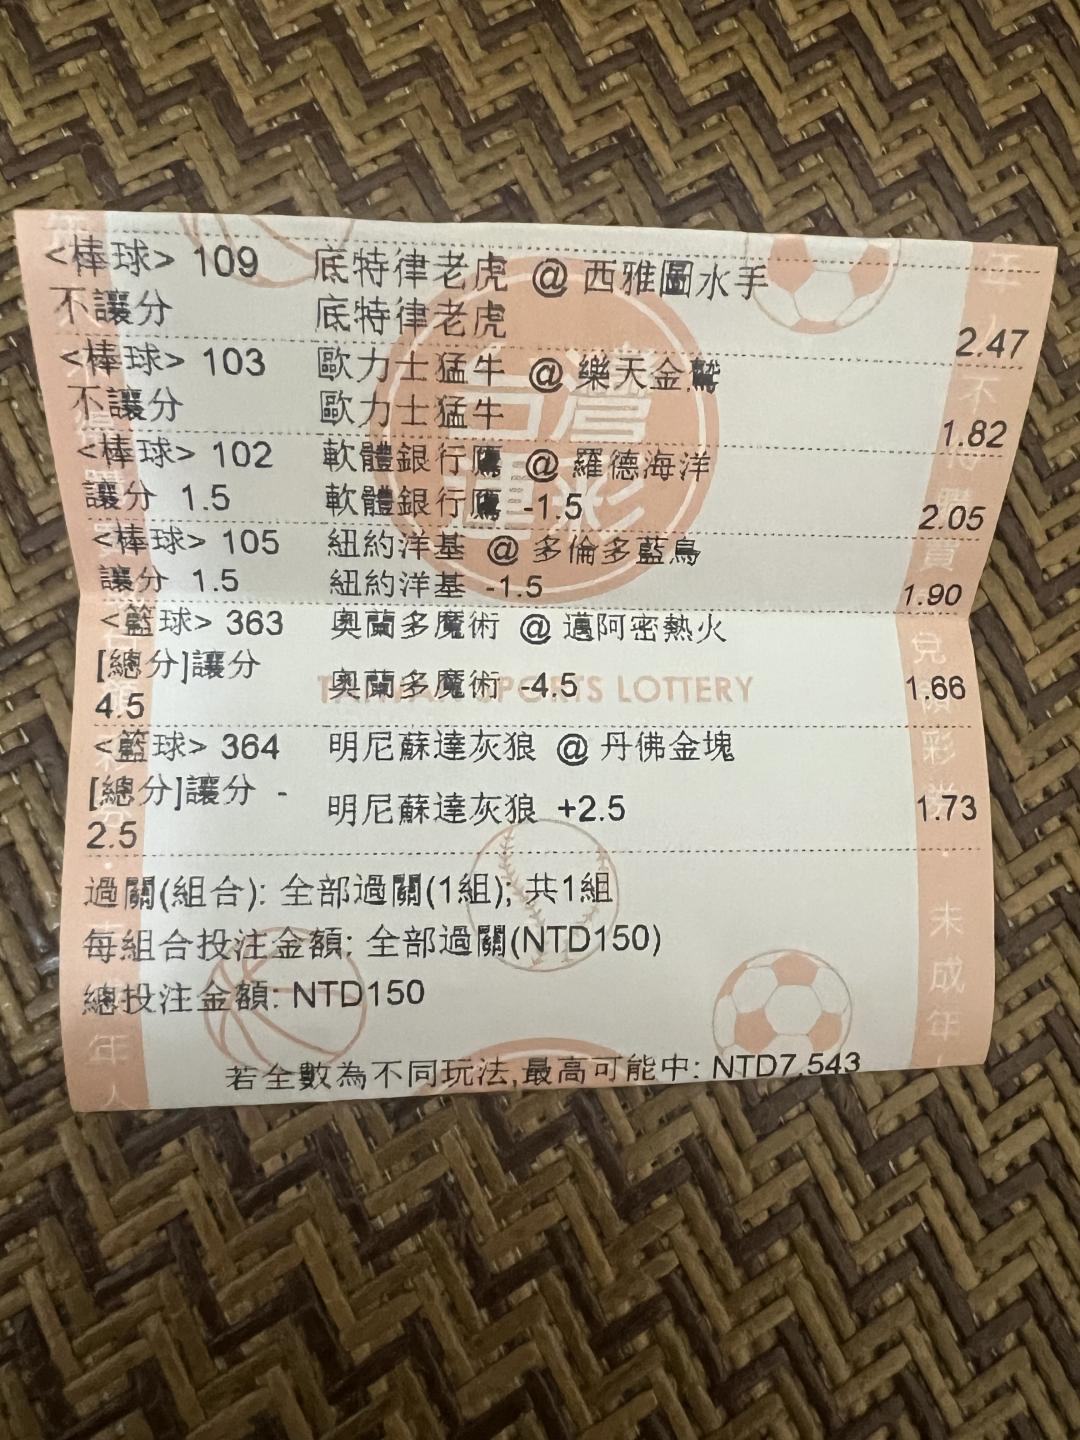 <棒球> 109 底特律老虎 @ 西雅圖水手
不讓分 底特律老虎 2.47
<棒球> 103 歐力士猛牛 @ 樂天金鷲
不讓分 歐力士猛牛 1.82
<棒球> 102 軟體銀行鷹 @ 羅德海洋
讓分 1.5 軟體銀行鷹 -1.5 2.05
<棒球> 105 紐約洋基 @ 多倫多藍鳥
讓分 1.5 紐約洋基 -1.5 1.90
<籃球> 363 奧蘭多魔術 @ 邁阿密熱火
[總分]讓分
4.5 奧蘭多魔術 -4.5 1.66
<籃球> 364 明尼蘇達灰狼 @ 丹佛金塊
[總分]讓分 -
2.5 明尼蘇達灰狼 +2.5 1.73
過關(組合): 全部過關(1組); 共1組
每組合投注金額: 全部過關(NTD150)
總投注金額: NTD150
若全數為不同玩法,最高可能中: NTD7,543
台灣
運彩
TAIWAN SPORTS LOTTERY
未成年